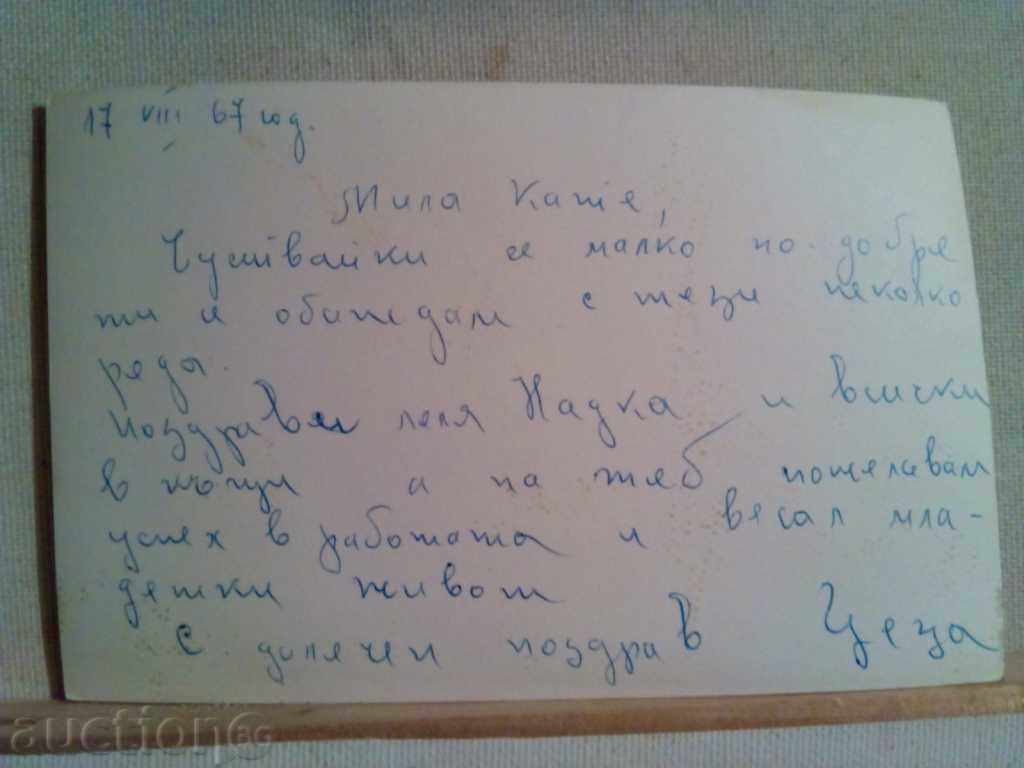 17 VIII 67 год.
Мила Катя,
Чуствайки се малко по-добре
ти се обаждам с тези неколко
реда.
Поздрави леля Надка и всички
в къщи а на теб пожелавам
успех в работата и весал мла-
дешки живот
С далечен поздрав Цеза
auction.bg